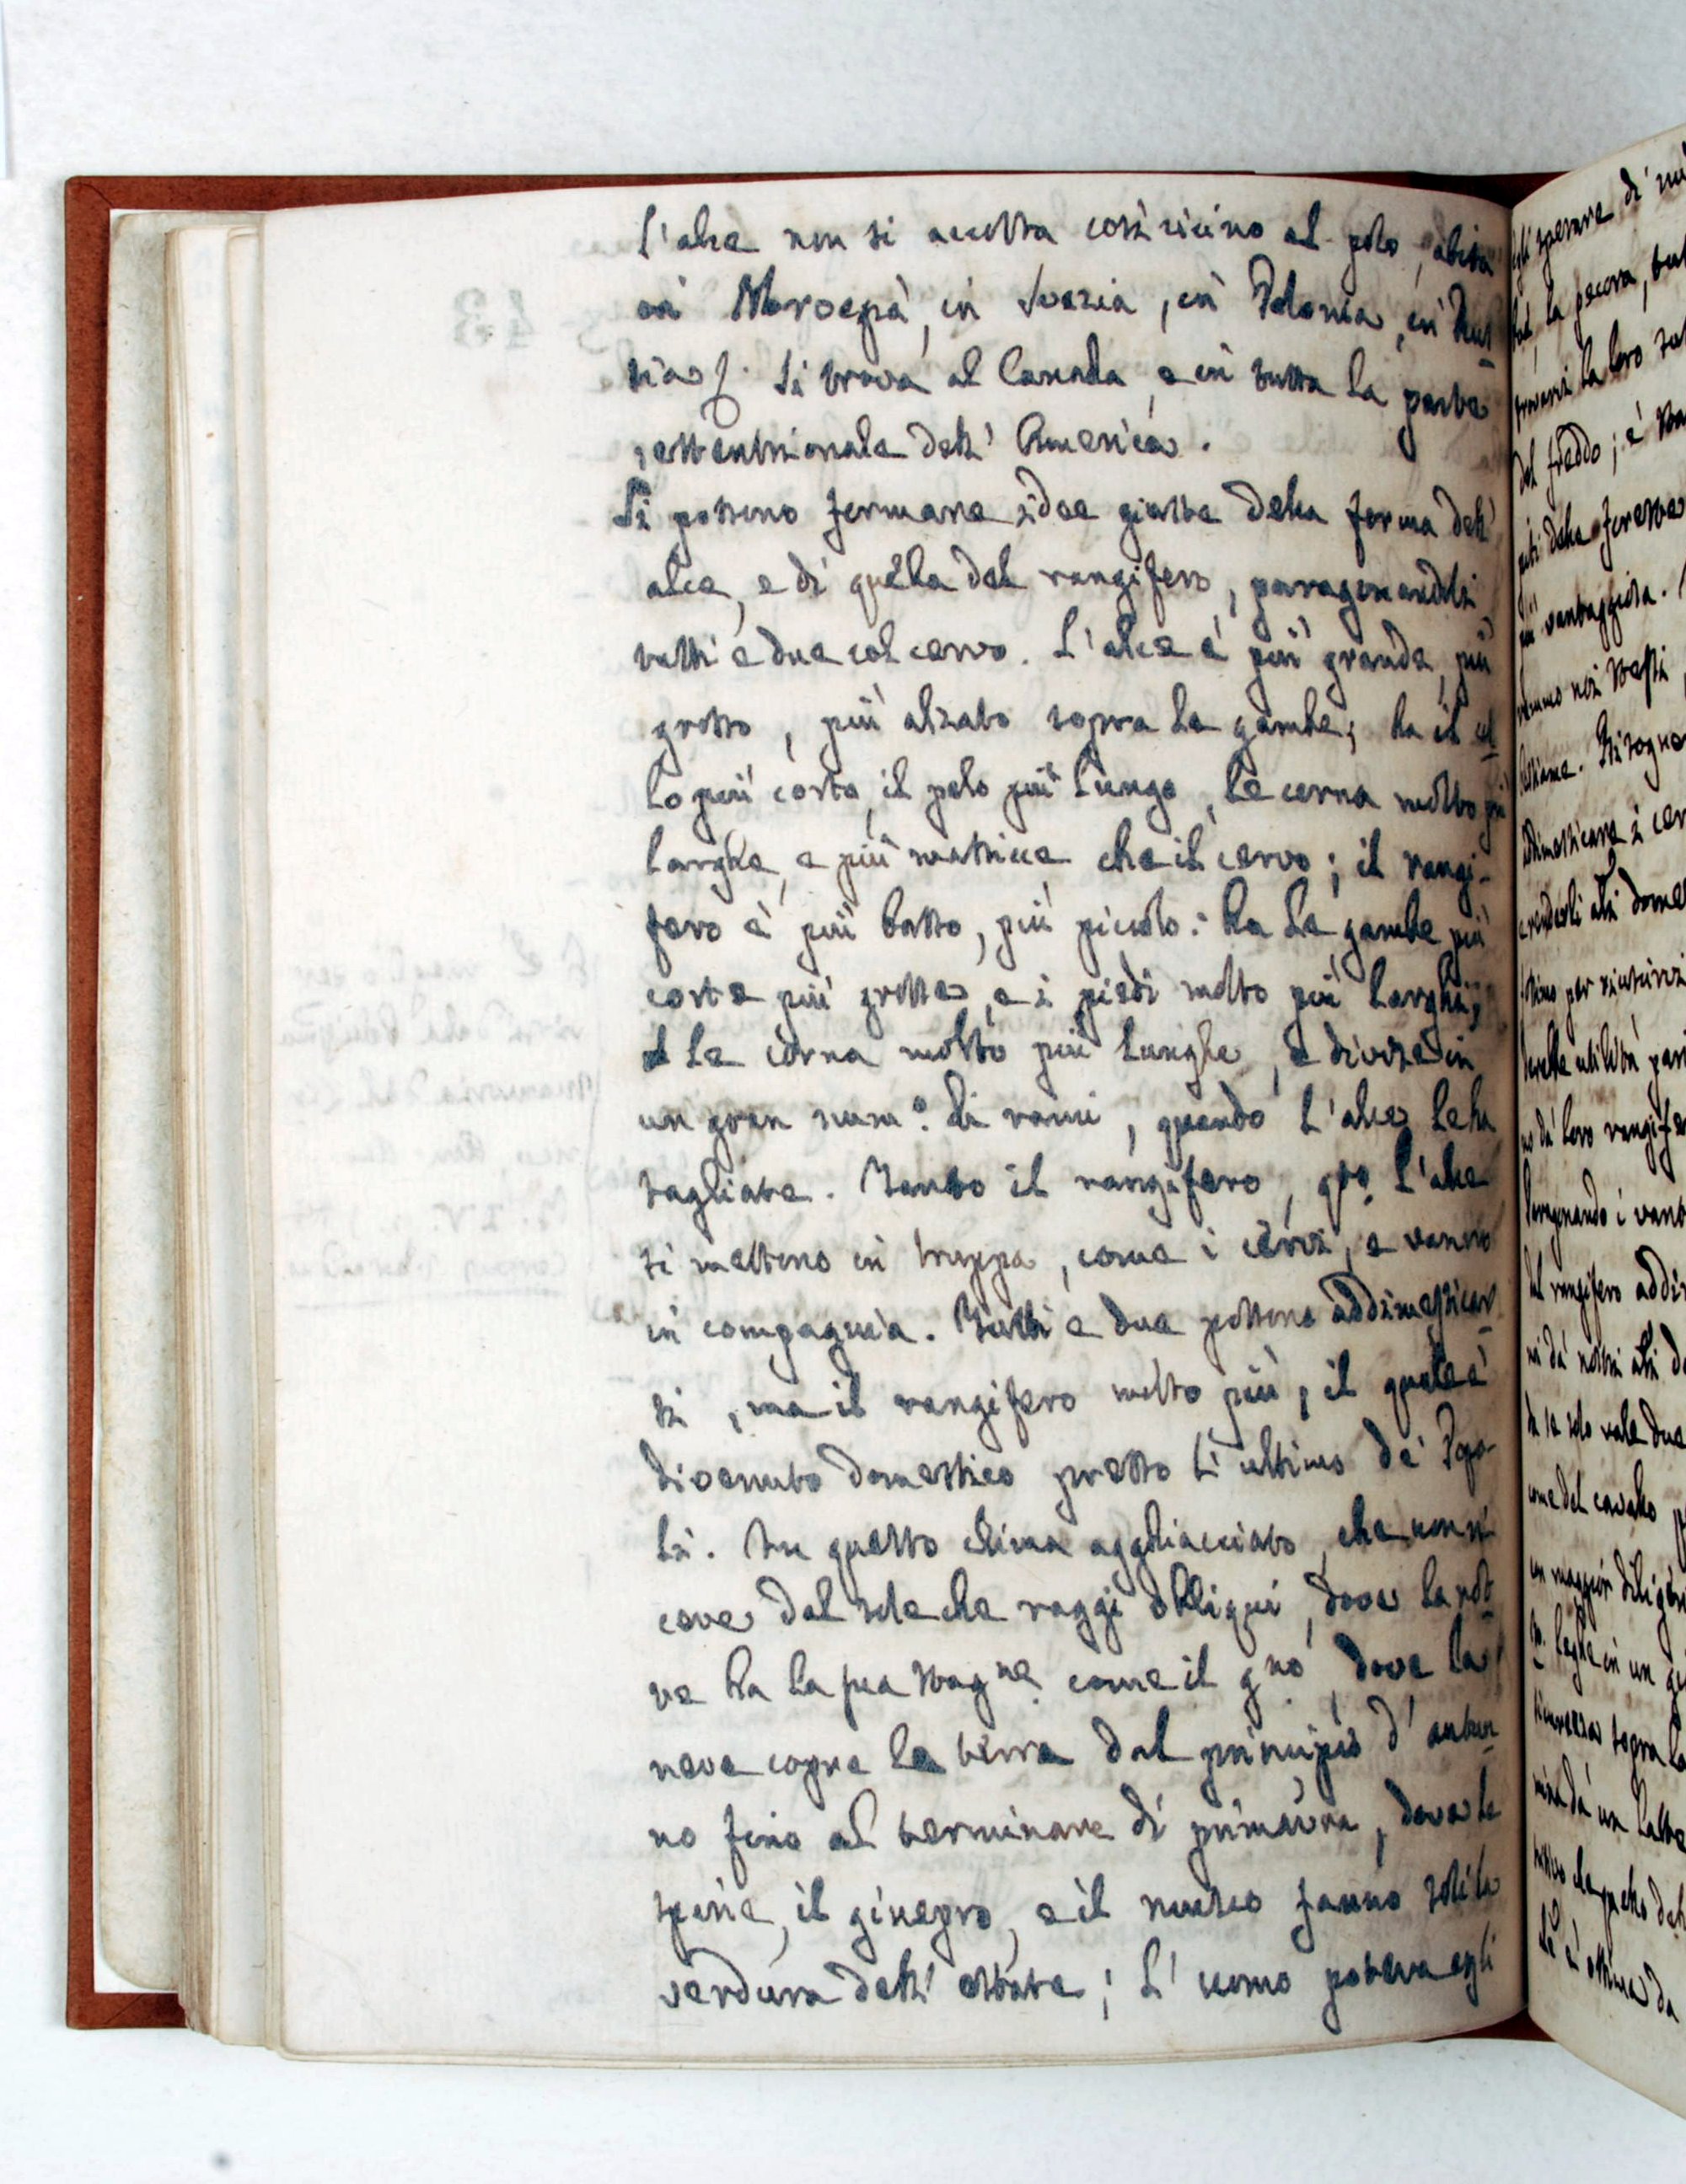 L'alce non si accosta così vicino al polo, abita
in Norvegia, in Svezia, in Polonia, in Rus-
sia. Si trova al Canada, e in tutta la parte
settentrionale dell'America.
Si possono formare idee giuste della forma dell'
alce, e di quella del rangifero, paragonandoli
tutti e due col cervo. L'alce è più grande, più
grosso, più alzato sopra le gambe; ha il col-
lo più corto, il pelo più lungo, le corna molto più
larghe, e più massicce che il cervo; il rangi-
fero è più basso, più piccolo: ha le gambe più
corte più grosse, e i piedi molto più larghi,
le corna molto più lunghe, e divise in
un gran num.° di rami, quando l'alce le ha
tagliate. Tanto il rangifero, qto l'alce
si mettono in truppa, come i cervi, e vanno
in compagnia. Tutti e due possono addimesticar-
si, ma il rangifero molto più, il quale è
divenuto domestico presso l'ultimo de' Popo-
li. In questo clima agghiacciato, che non ri-
ceve dal sole che raggi obliqui, dove la not-
te ha la sua stagne come il gno, dove la
neve copre la terra dal principio d'autun-
no fino al terminare di primavera, dove le
spine, il ginepro, e il musco fanno sole la
verdura dell'estate; l'uomo poteva egli
egli sperare di
la pecora,
la loro
del freddo; è
della foresta
più vantaggiosa.
noi stessi
Bisogna
i cer
altri dome
per
utilità
da' loro rangife
i vant
rangifero addi
da' nostri altri do
se solo vale due
come del cavallo
con maggior
leghe in un
sopra la
un latte
che quello del
è ottima da